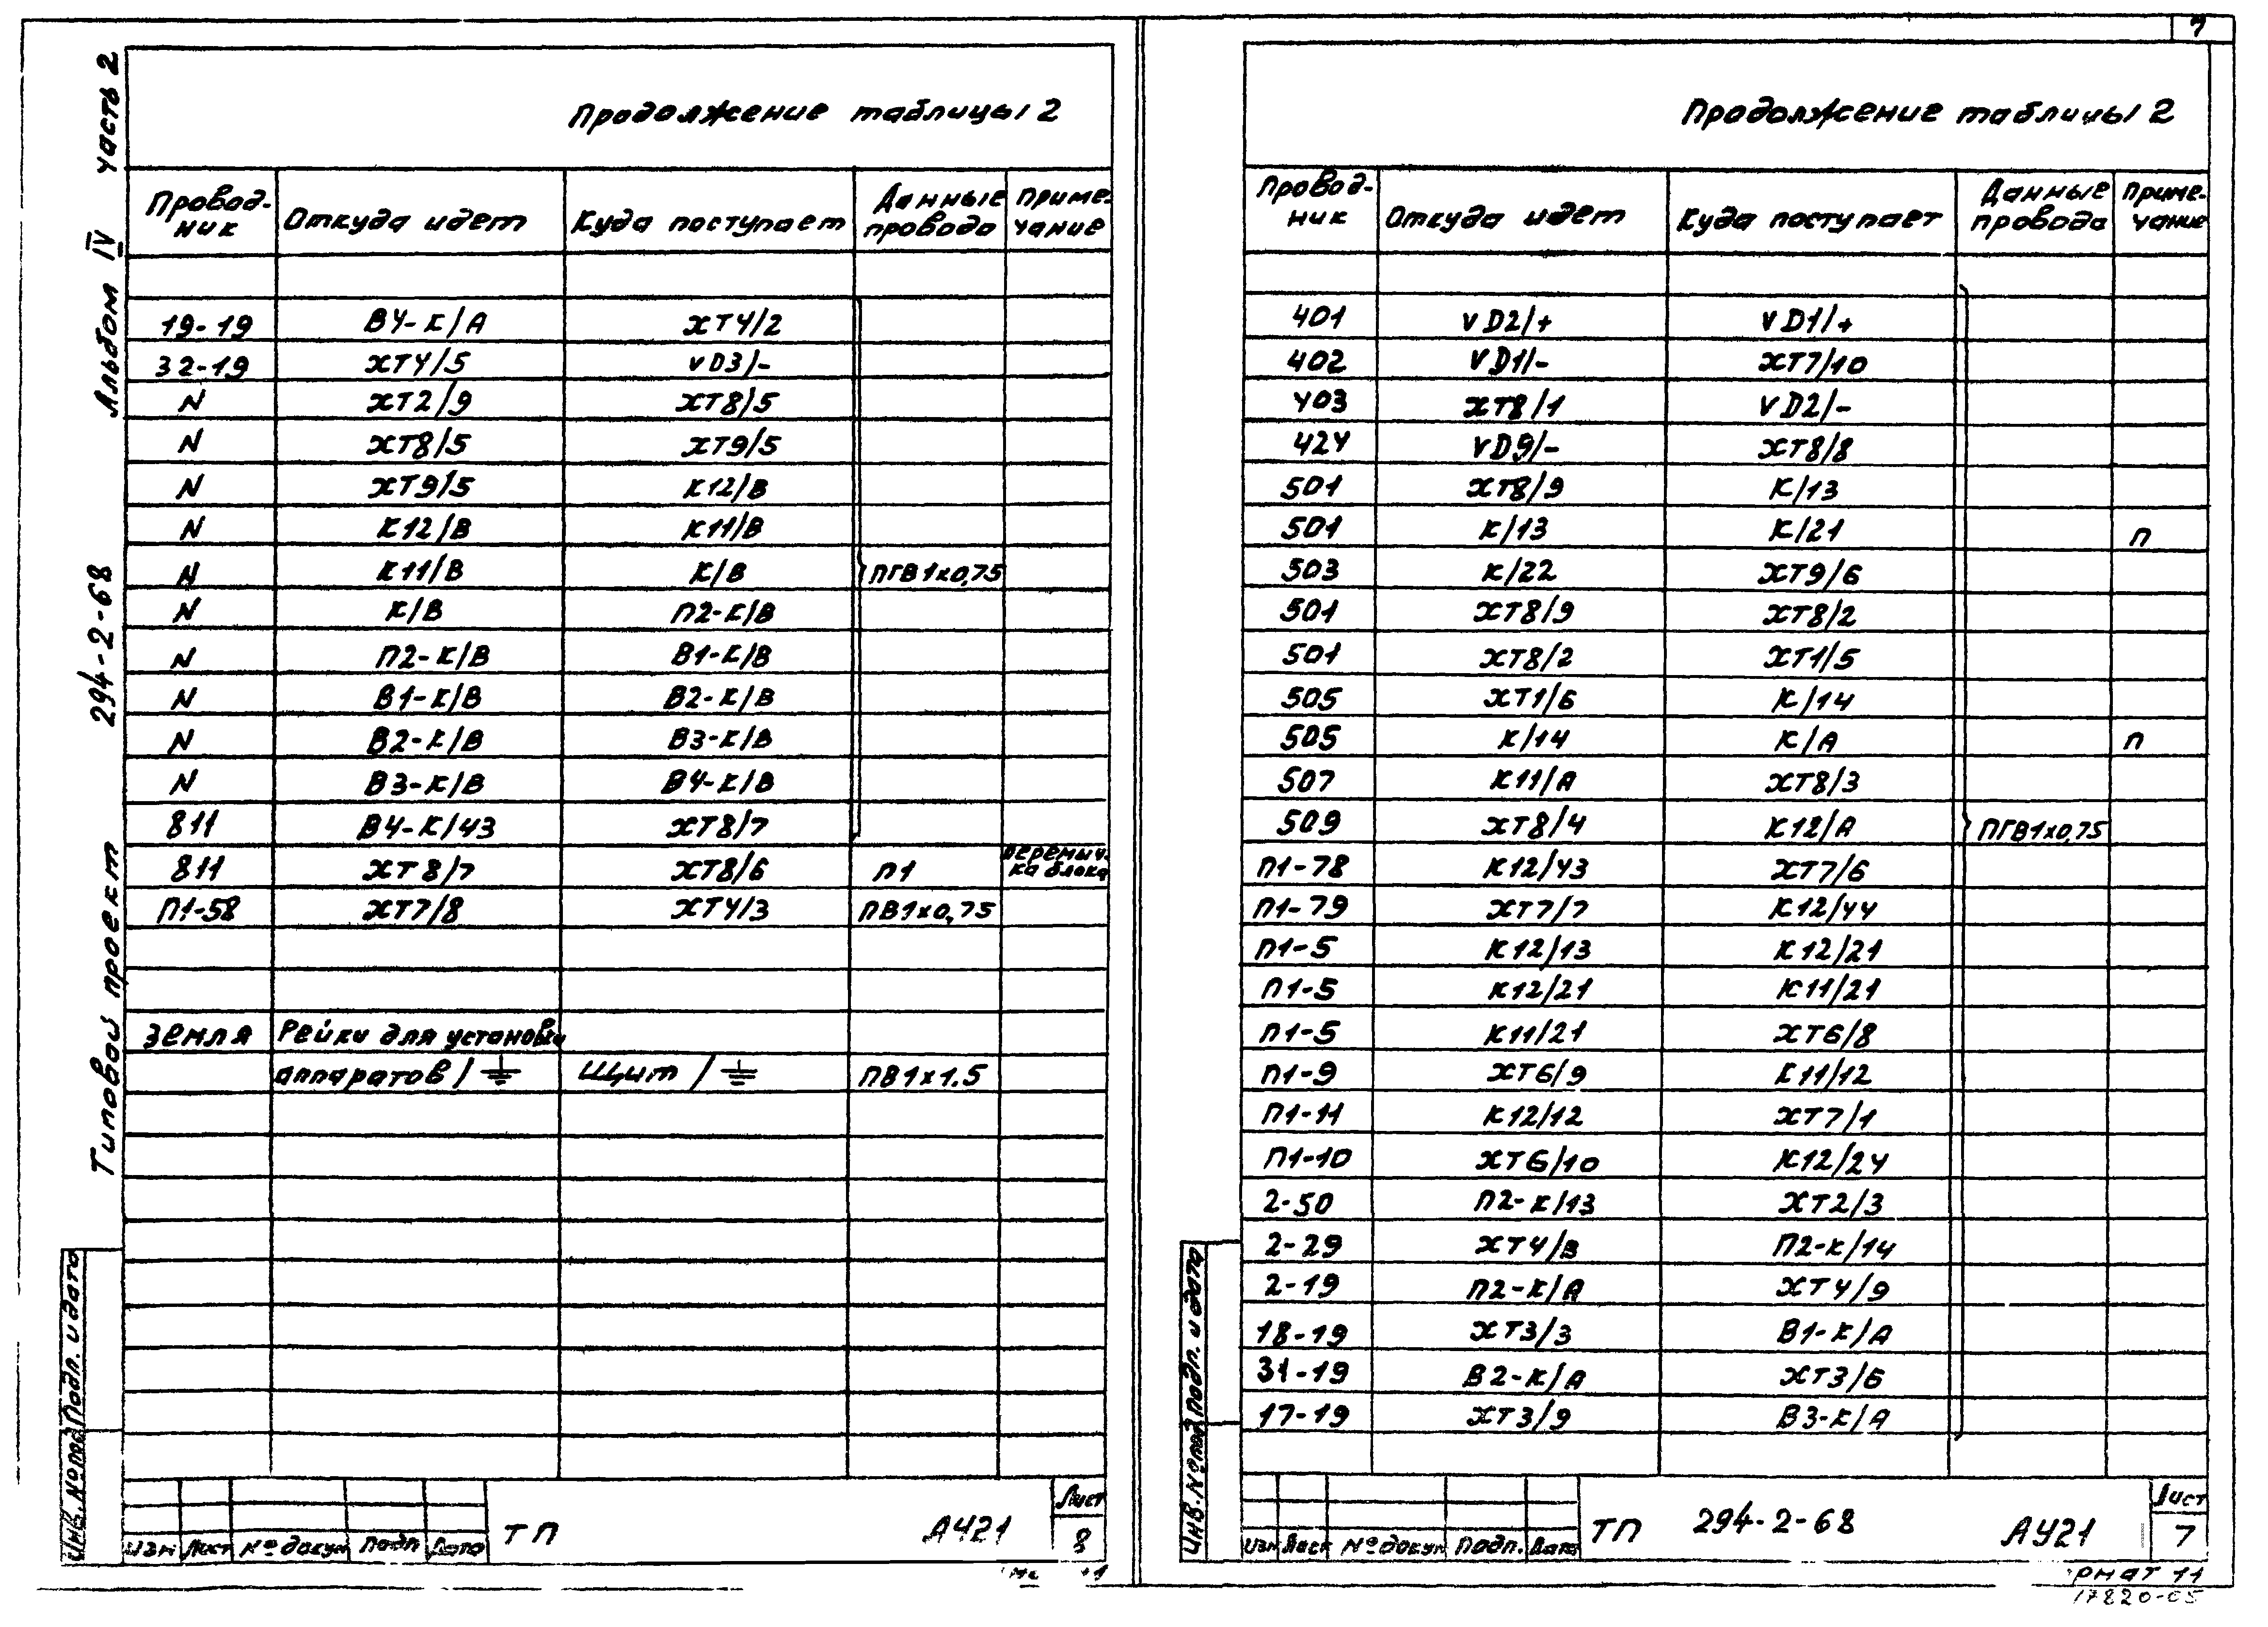 7
Типовой проект 294-2-68 Альбом IV часть 2
Продолжение таблицы 2
Провод-ник Откуда идет Куда поступает Данные провода Приме-чание
19-19 В4-К/А ХТ4/2
32-19 ХТ4/5 VD3/-
N ХТ2/9 ХТ8/5
N ХТ8/5 ХТ9/5
N ХТ9/5 К12/В
N К12/В К11/В
N К11/В К/В ПГВ1х0,75
N К/В П2-К/В
N П2-К/В В1-К/В
N В1-К/В В2-К/В
N В2-К/В В3-К/В
N В3-К/В В4-К/В
811 В4-К/43 ХТ8/7
811 ХТ8/7 ХТ8/6 П1 перемыч-ка блока
П1-58 ХТ7/8 ХТ4/3 ПВ1х0,75
Земля Рейки для установки
аппаратов/⏚ Щит/⏚ ПВ1х1.5
Инв. № подл. Подп. и дата
Изм Лист № докум Подп Дата
ТП АУ21 Лист 8
Продолжение таблицы 2
Провод-ник Откуда идет Куда поступает Данные провода Приме-чание
401 VD2/+ VD1/+
402 VD1/- ХТ7/10
403 ХТ8/1 VD2/-
424 VD9/- ХТ8/8
501 ХТ8/9 К/13
501 К/13 К/21 п
503 К/22 ХТ9/6
501 ХТ8/9 ХТ8/2
501 ХТ8/2 ХТ1/5
505 ХТ1/6 К/14
505 К/14 К/А п
507 К11/А ХТ8/3
509 ХТ8/4 К12/А ПГВ1х0,75
П1-78 К12/43 ХТ7/6
П1-79 ХТ7/7 К12/44
П1-5 К12/13 К12/21
П1-5 К12/21 К11/21
П1-5 К11/21 ХТ6/8
П1-9 ХТ6/9 К11/12
П1-11 К12/12 ХТ7/1
П1-10 ХТ6/10 К12/24
2-50 П2-К/13 ХТ2/3
2-29 ХТ4/8 П2-К/14
2-19 П2-К/А ХТ4/9
18-19 ХТ3/3 В1-К/А
31-19 В2-К/А ХТ3/6
17-19 ХТ3/9 В3-К/А
Инв. № подл. Подп. и дата
Изм Лист № докум Подп. Дата
ТП 294-2-68 АУ21 Лист 7
рмат 11
17820-05